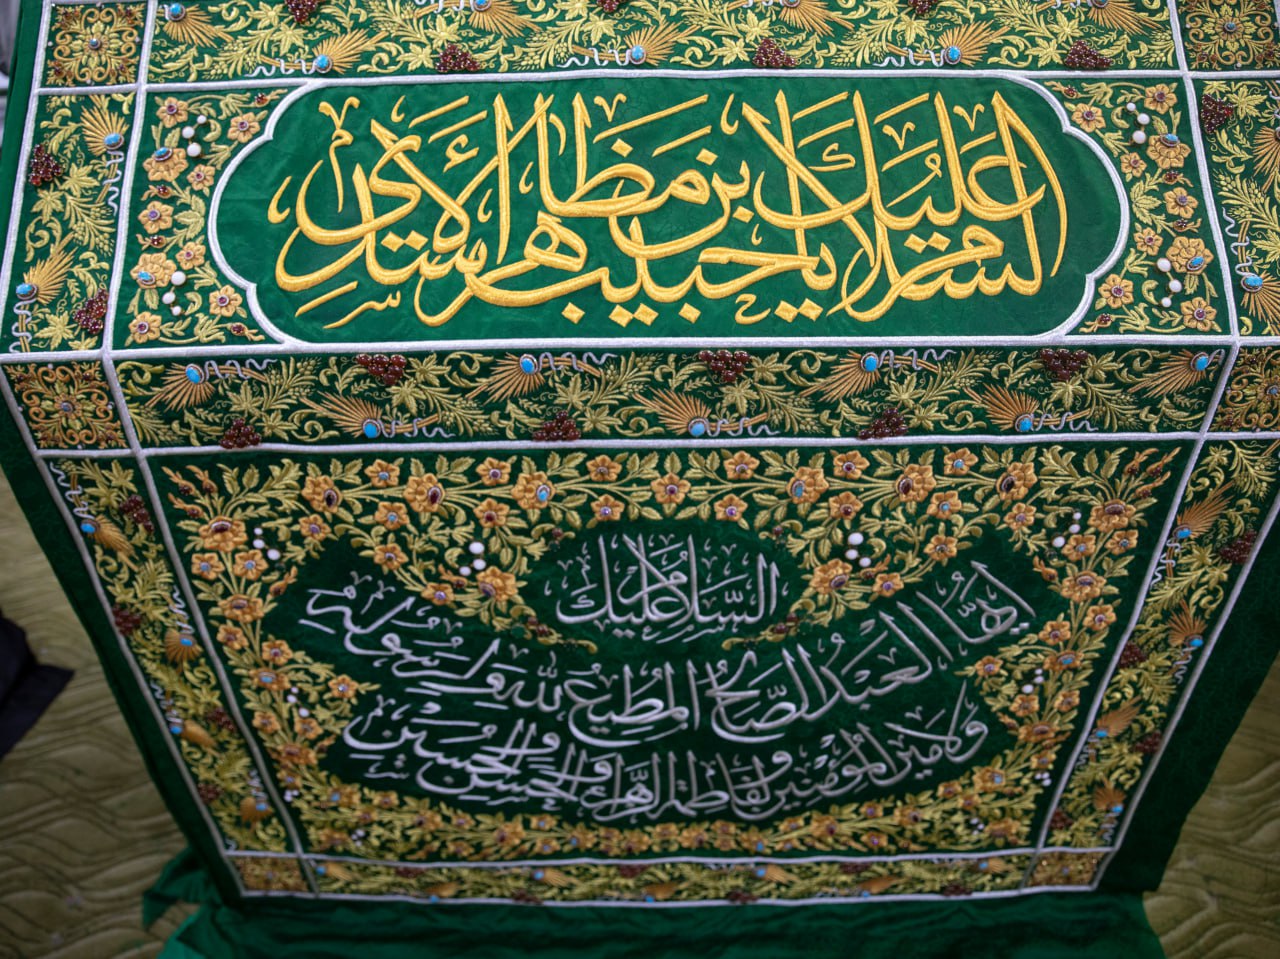 السلام عليك يا حبيب بن مظاهر الأسدي
السَّلامُ عَليكَ
أيُّها العَبدُ الصَّالحُ المُطيعُ للهِ ولِرَسُولِهِ
ولأميرِ المُؤمِنينَ وفاطمةَ الزهراءِ والحَسَنِ والحُسَيْنِ